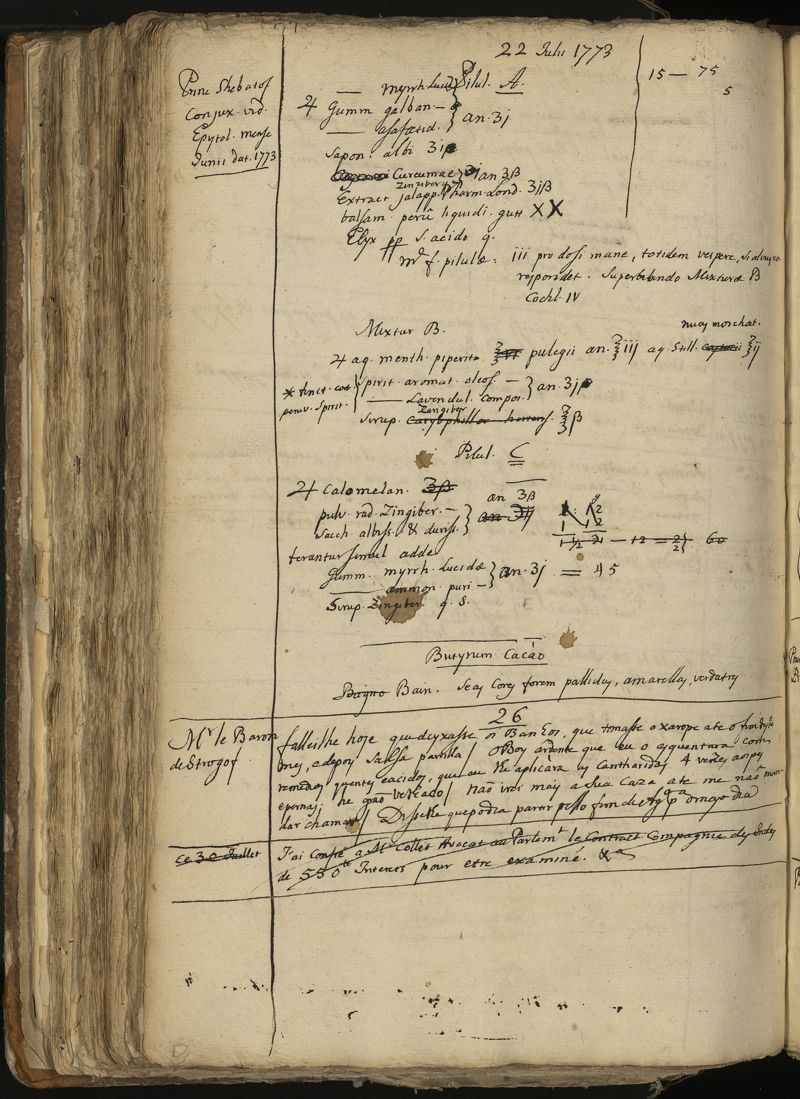 22 Julii 1773
15 — 75
5
Conjux. vid.
Epistol. mense
Junii dat. 1773
Pilul. A.
— myrrh. Lucid
♃ Gumm galban —
— asafætid. } an. ʒj
Sapon. albi ʒj
Curcumae an ʒß
Zingiber
Extract jalapp. Pharm. Lond. ʒjß
balsam. perû liquidi. gutt XX
Elyx pp s. acido q.
M. f. pilulæ: iii pro dosi mane, totidem vespere, si alvus non
respondet. Superbibendo Mixturæ B
Cochl. IV
Mixtur B.
nucis moschat.
♃ aq. menth. piperitæ pulegii an. ℥iij aq. Still. ℥ij
* tinct. cort. peruv. Spirit.
Spirit. aromat. oleos. —
— Lavendul. Compos. } an. ʒj
Zingiber
Sirup. Caryophillor hortens. ℥ß
Pilul. C
♃ Calomelan. ʒß
an ʒß
pulv. rad. Zingiber. —
Sacch. albiss. & duriss. }
terantur simul adde
Gumm. myrrh. Lucidæ
— ammon. puri — } an. ʒj = 45
Sirup. Zingiber. q. s.
Butyrum Cacáo
Bagno Bain. Seas Cores forem pallidas, amarellas, verdatres
26
Mr le Baron
de Strogof
falleilhe hoje que deyxasse os Banhos, que tomasse o xarope ate o fim deste
mes, e depoys Salsa parrilla / O Boy ardente que eu o aquentura com
remedios quentes e acidos, que eu lhe aplicàra as Cantharidas 4 vezes aos pes
e pernas; he graõ velhado / Naõ irei mais a Sua Caza ate me naõ man-
dar chamar / Disselhe que podia parar pello fim de Agto
ce 30 Juillet
J'ai Confié a Mr Collet Avocat au Parlemt le Contract Compagnie des Indes
de 550 tt Interets pour etre examiné.